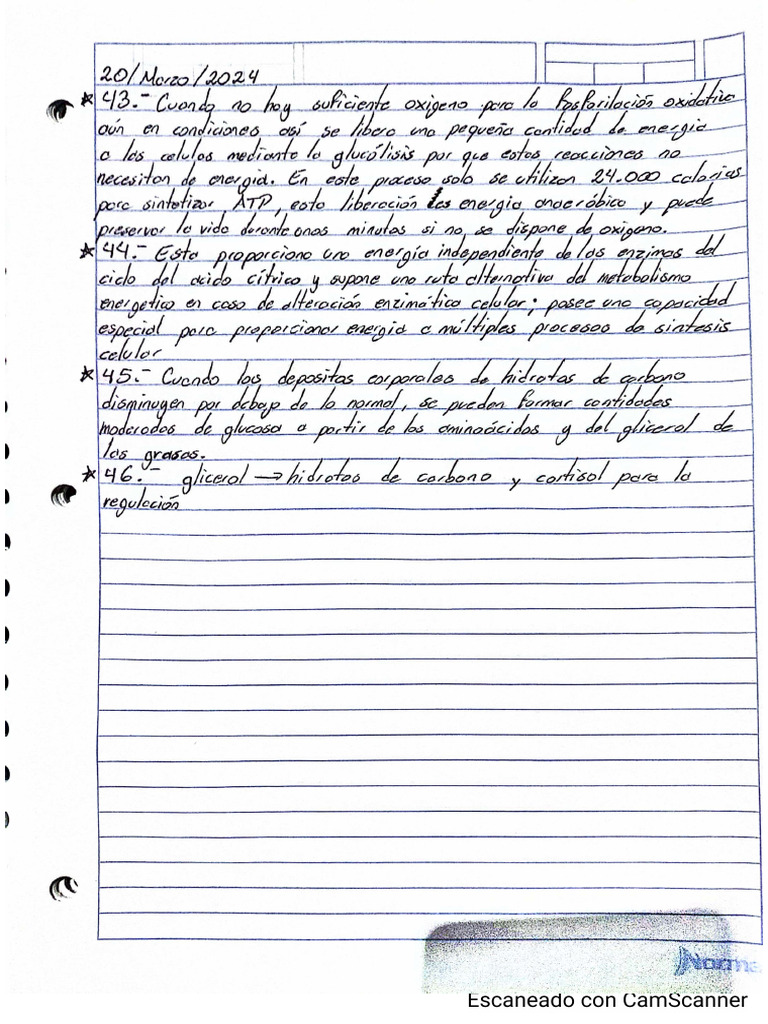 20/Marzo/2024
* 43.- Cuando no hay suficiente oxigeno para la fosforilación oxidativa
aún en condiciones así se libera una pequeña cantidad de energia
a las celulas mediante la glucólisis por que estas reacciones no
necesitan de energia. En este proceso solo se utilizan 24.000 calorias
para sintetizar ATP, esta liberación es energia anaeróbica y puede
preservar la vida durante unos minutos si no se dispone de oxigeno.
* 44.- Esta proporciona una energía independiente de las enzimas del
ciclo del acido cítrico y supone una ruta alternativa del metabolismo
energetico en caso de alteración enzimática celular; posee una capacidad
especial para proporcionar energia a múltiples procesos de sintesis
celular
* 45.- Cuando los depositos corporales de hidratos de carbono
disminuyen por debajo de lo normal, se pueden formar cantidades
moderadas de glucosa a partir de los aminoácidos y del glicerol de
las grasas.
* 46.- glicerol → hidratos de carbono y cortisol para la
regulación
Norma
Escaneado con CamScanner